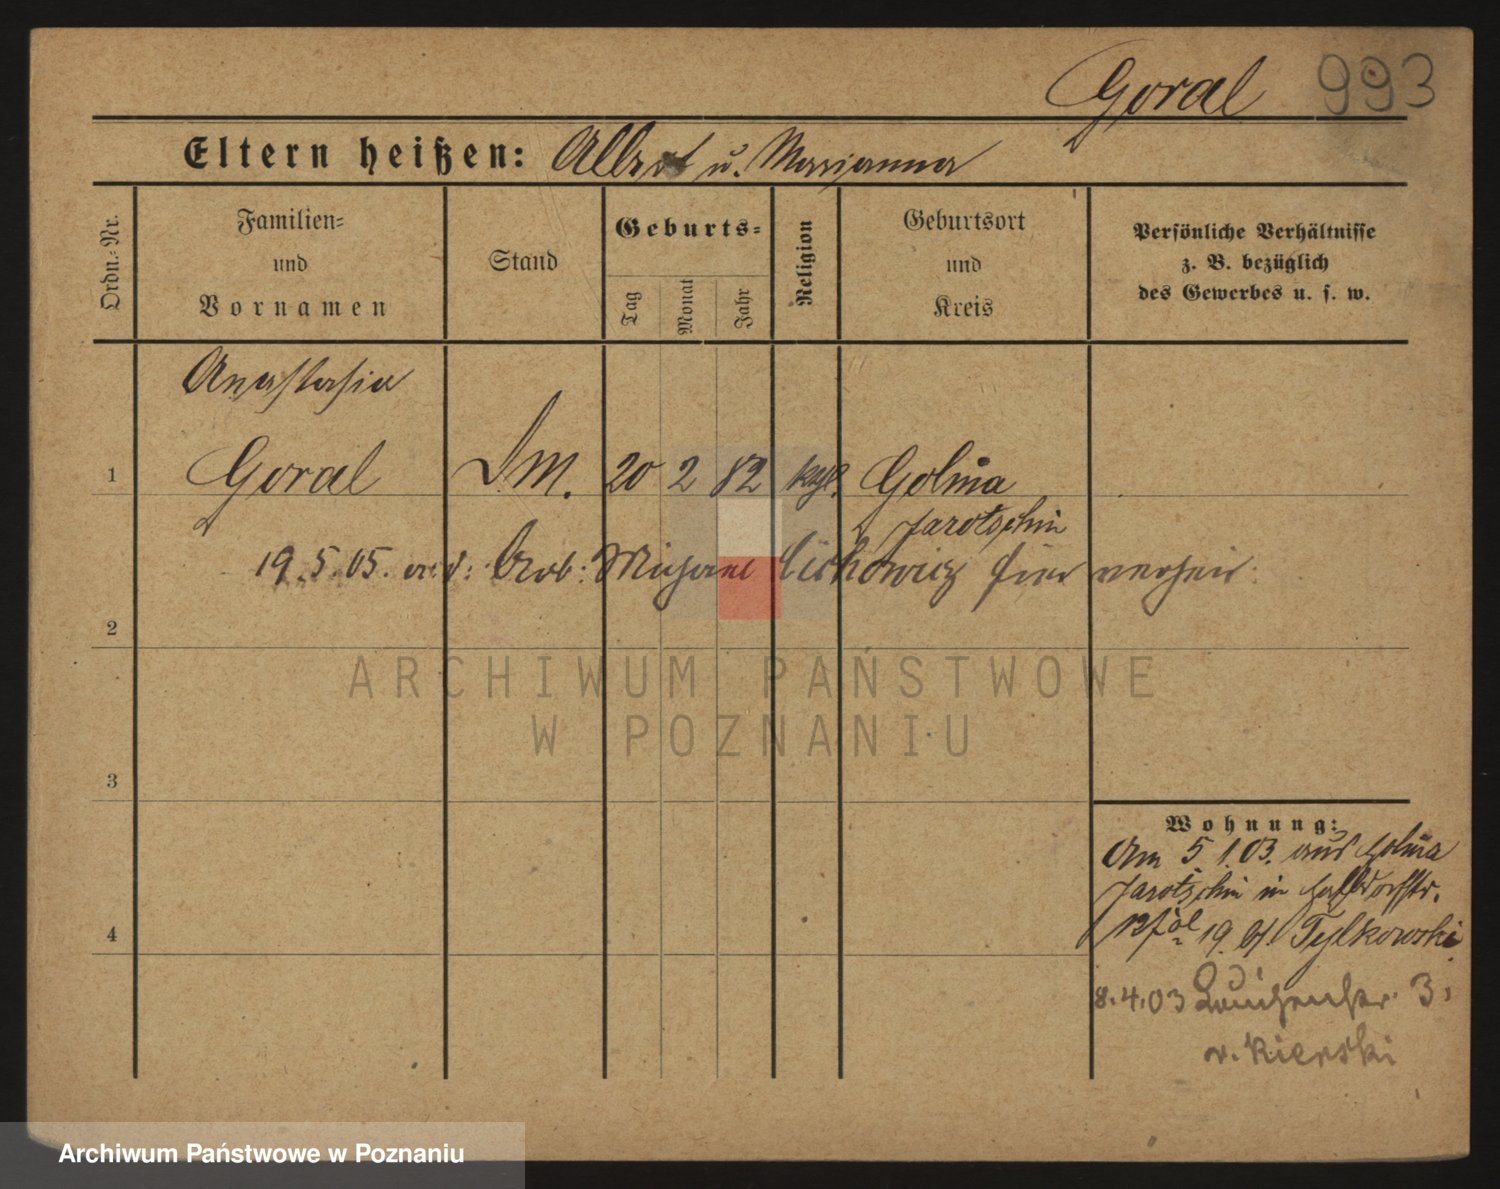 Goral 993
Eltern heißen: Albert u. Marjanna
Ordn.-Nr.
Familien-
und
Vornamen
Stand
Geburts-
Tag
Monat
Jahr
Religion
Geburtsort
und
Kreis
Persönliche Verhältnisse
z. B. bezüglich
des Gewerbes u. s. w.
Anastasia
1 Goral M. 20 2 82 Golina
Jarotschin
19.5.05. Arb: hier
2
3
4
Wohnung:
Am 5.1.03. aus Golina
Jarotschin in
19. Tylkowski
8.4.03 Louisenstr. 3,
v. Kierski
ARCHIWUM PAŃSTWOWE
W POZNANIU
Archiwum Państwowe w Poznaniu